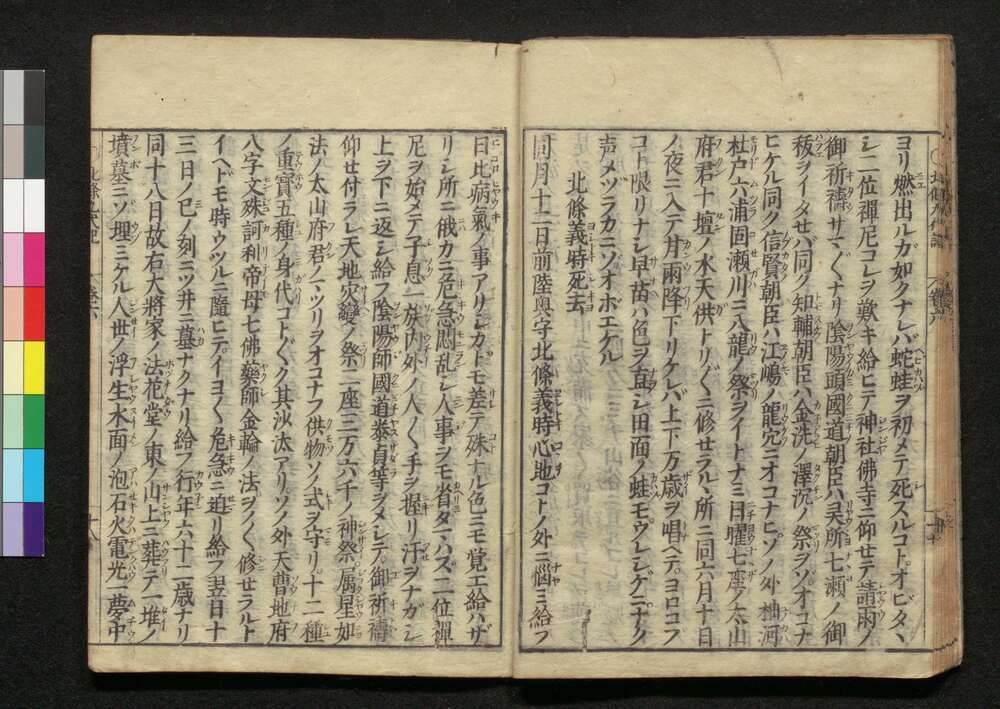 ヨリ燃出ルガ如クナレバ蛇蛙ヲ初メテ死スルコトオビタヽ
シ二位禪尼コレヲ歎キ給ヒテ神社佛寺ニ仰セテ請雨ノ
御祈禱サマ〲ナリ陰陽頭國道朝臣ハ灵所七瀬ノ御
秡ヲイタセバ同ク知輔朝臣ハ金洗ノ澤沉ノ祭ヲソオコナ
ヒケル同ク信賢朝臣ハ江嶋ノ龍穴ニオコナヒソノ外柚河
杜戸六浦固瀬川ニ八龍ノ祭ヲイトナミ日曜七座ノ太山
府君十壇ノ水天供トリ〲ニ修セラルヽ所ニ同六月十日
ノ夜ニ入テ甘雨降下リケレバ上下万歳ヲ唱ヘテヨロコフ
コト限リナシ早苗ハ色ヲ直シ田面ノ蛙モウレシゲニナク
声メヅラカニゾオボエケル
北條義時死去
同月十二日前陸奥守北條義時心地コトノ外ニ惱ミ給フ
日比病氣ノ事アリシカトモ差テ殊ナル色ニモ覚エ給ハザ
リシ所ニ俄カニ危急悶乱シ人事ヲモ省タヽハズ二位禪
尼ヲ始メテ子息一族内外ノ人〱手ヲ握リ汗ヲナガシ
上ヲ下ニ返シ給フ陰陽師國道泰貞等ヲメシテ御祈禱
仰セ付ラレ天地灾變ノ祭二座三万六千ノ神祭属星如
法ノ太山府君ノマツリヲオコナフ供物ソノ式ヲ守リ十二種
ノ重寳五種ノ身代コト〲ク其沙汰アリソノ外天曹地府
八字文殊訶利帝母七佛藥師金輪ノ法ヲノ〱修セラルト
イヘドモ時ウツルニ隨ヒテイヨ〱危急ニ迫リ給フ翌日十
三日ノ巳ノ刻ニツ井ニ墓ナクナリ給フ行年六十二歳ナリ
同十八日故右大將家ノ法花堂ノ東ノ山上ニ葬テ一堆ノ
墳墓ニゾ埋ミケル人世ノ浮生水面ノ泡石火電光ノ夢中